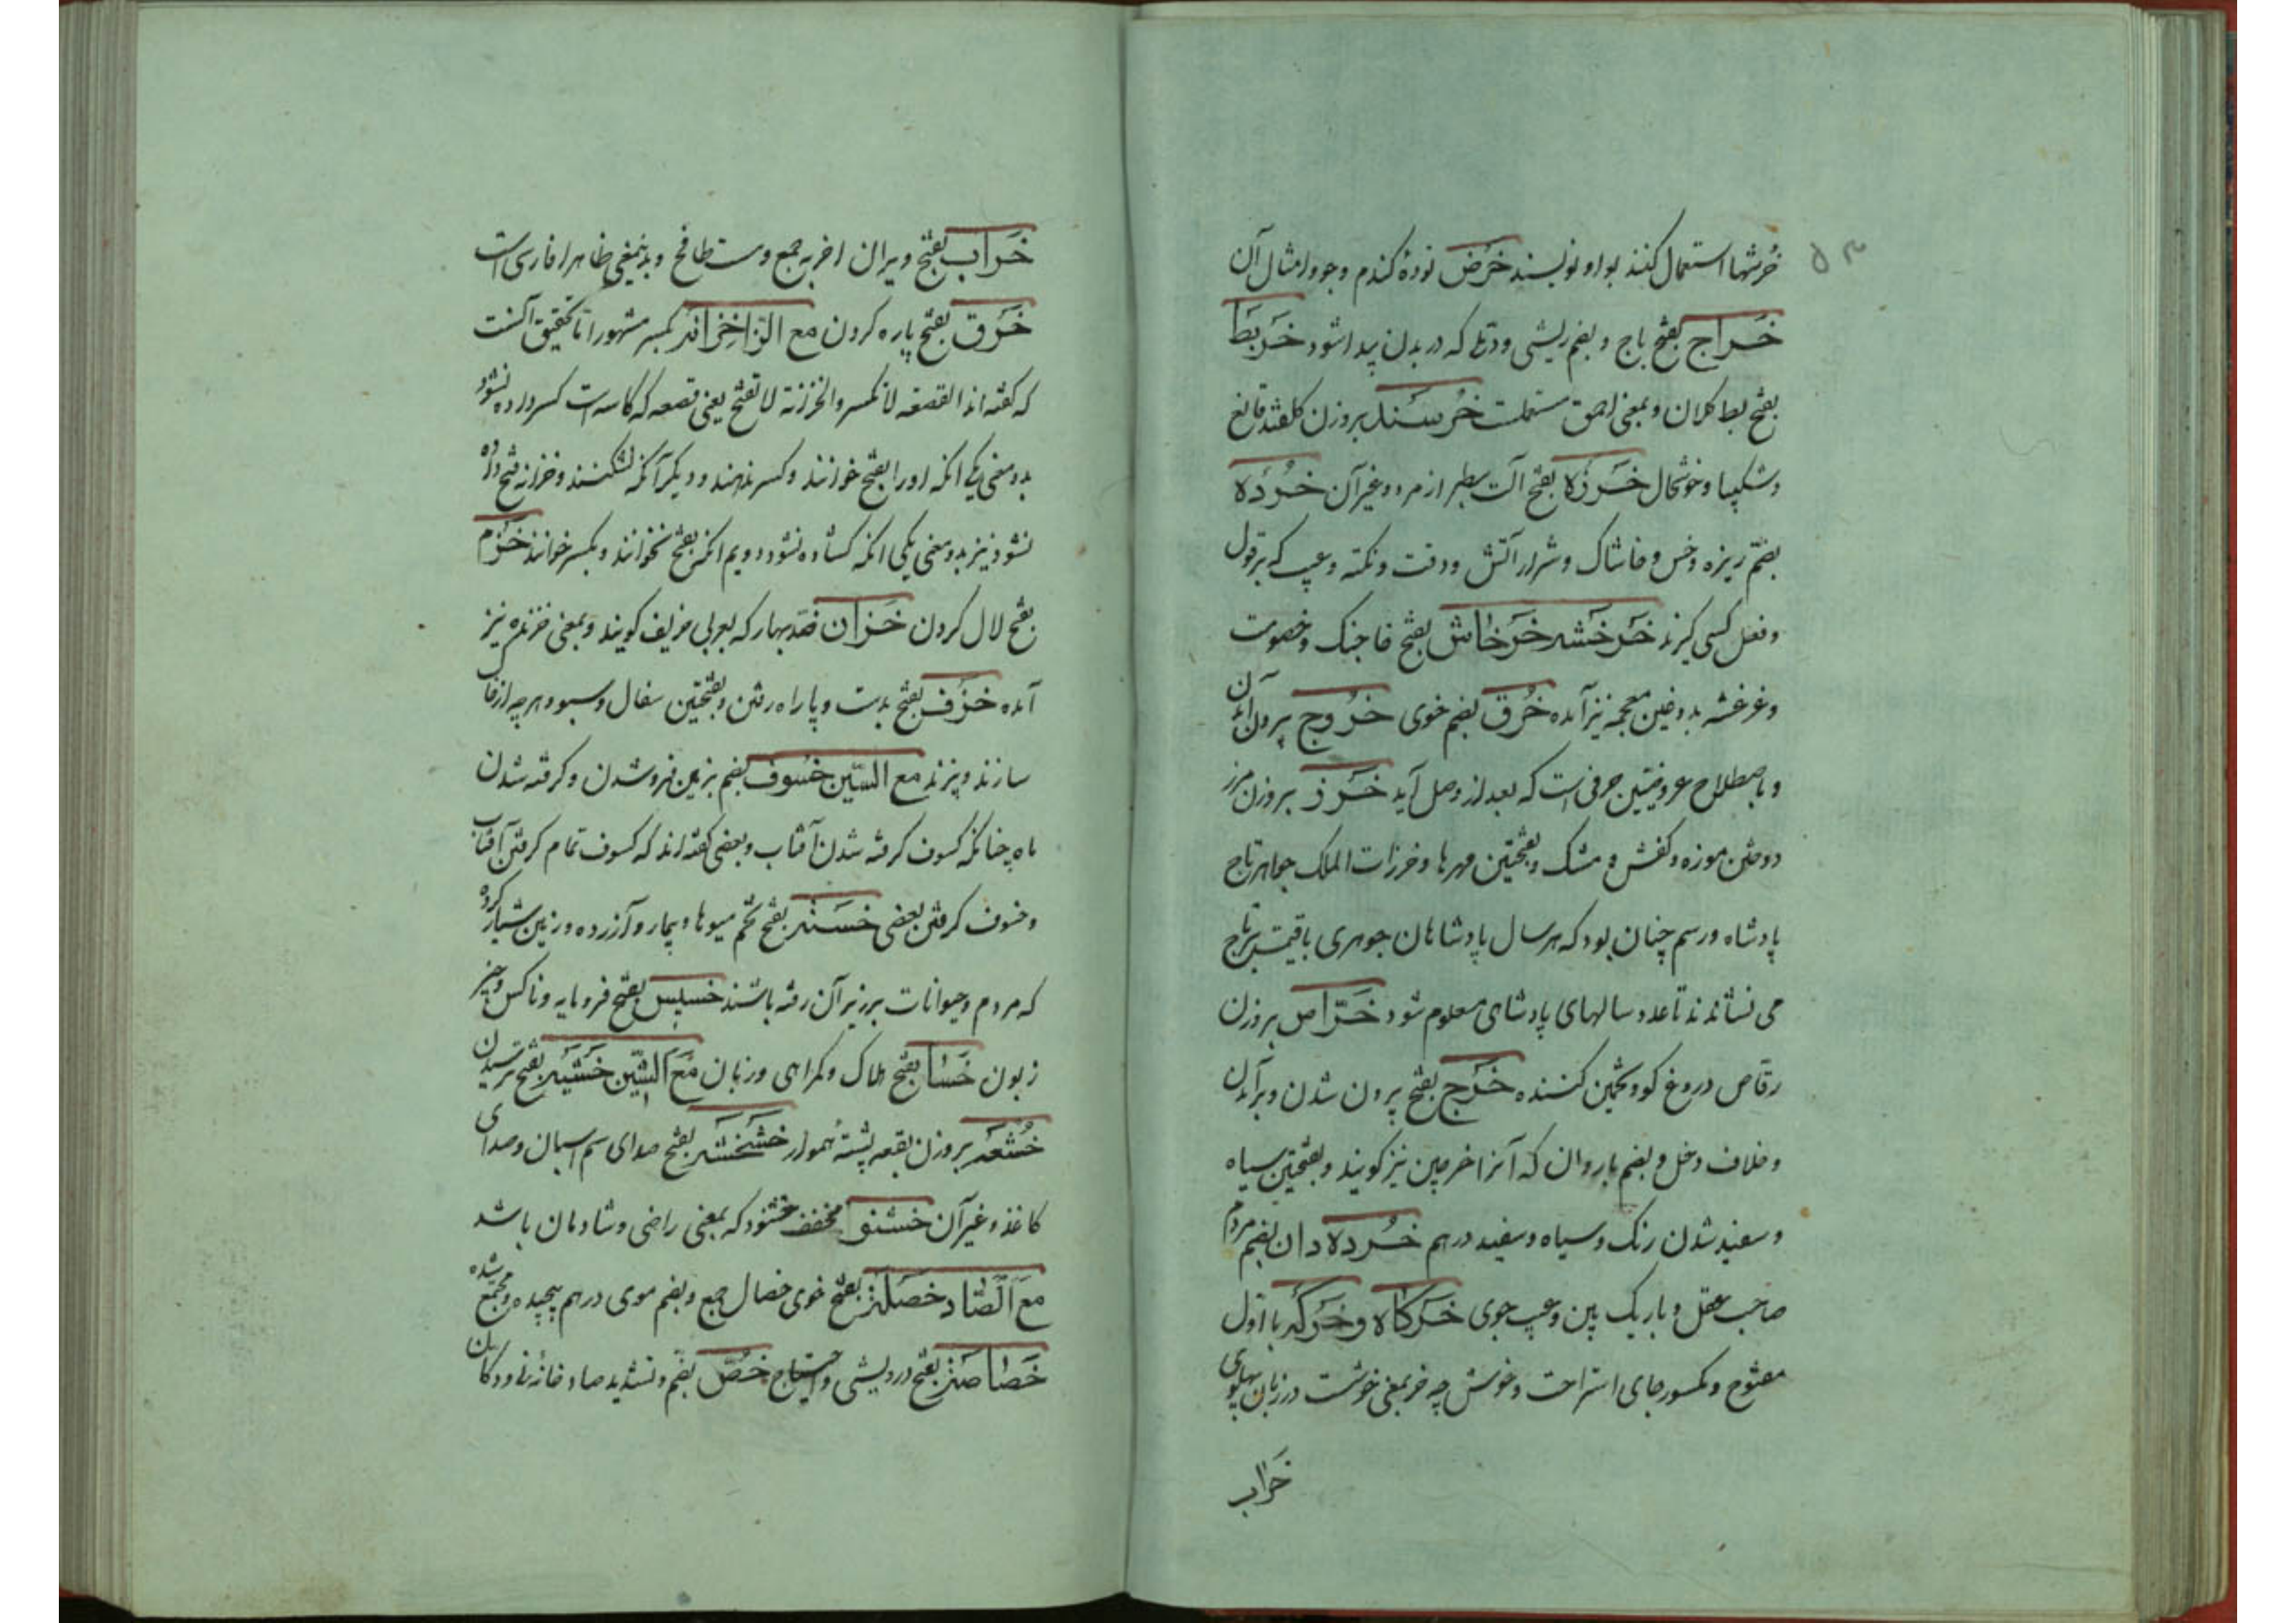 خرشها استعمال کنند بواو نویسند خَرَض تودهٔ کندم وجو وامثال آن
خَراج بفتح باج وبضم ریشی ودملی که در بدن پیدا شود خَربَط
بفتح بط کلان وبمعنی احمق مستعملست خُرسَند بروزن کلقند قانع
وشکیبا وخوشحال خَرزَه بفتح آلت سطبر از مرد وغیر آن خُردَه
بضم ریزه وخس وخاشاک وشرار آتش ودقت ونکته وعیب که بر قول
وفعل کسی کیرند خَرخَشه خَرخاش بفتح خا جنک وخصومت
وغرغشه بدوغین معجمه نیز آمده خُرق بضم خوی خُروج بیرون آمدن
وباصطلاح عروضیین حرفی است که بعد از وصل آید خَرز بروزن مرز
دوختن موزه وکفش و مشک وبفتحتین مهرها وخرزات الملک جواهر تاج
پادشاه ورسم چنان بود که هر سال پادشاهان جوهری باقیمت بر تاج
می نشاندند تا عدد سالهای پادشاهی معلوم شود خَرّاص بروزن
رقاص دروغ کو وتخمین کننده خَرج بفتح بیرون شدن وبرآمدن
وخلاف دخل وبضم باردان که آنرا خرجین نیز کویند وبفتحتین سیاه
وسفید شدن رنک وسیاه وسفید درهم خُرده دان بضم مردم
صاحب عقل وباریک بین وعیب جوی خَرکاه وخَرکَه با اول
مفتوح ومکسور جای استراحت وخوش چه خر بمعنی خوشست در زبان پهلوی
خراب
خَراب بفتح ویران اخربه جمع ومست طافح وبدینمعنی ظاهرا فارسی است
خَرق بفتح پاره کردن مع الزا خِزانَه بکسر مشهور اما تحقیق آنست
که کفته اند القصعة لا تکسر والخزنة لا تفتح یعنی قصعه که کاسه است کسر داده نشود
بدو معنی یکی انکه اورا بفتح خوانند وکسر ندهند ودیکر آنکه نشکنند وخزانه فتح داده
نشود نیز بدو معنی یکی انکه کشاده نشود دویم انکه بفتح نخوانند وبکسر خوانند خَزم
بفتح لال کردن خَزان ضد بهار که بعربی خریف کویند وبمعنی خزنده نیز
آمده خَزَف بفتح بدست وپا راه رفتن وبفتحتین سفال وسبو وهر چه از خاک
سازند وپزند مع السّین خُسوف بضم بزمین فروشدن وکرفته شدن
ماه چنانکه کسوف کرفته شدن آفتاب وبعضی کفته اند که کسوف تمام کرفتن آفتاب
وخسوف کرفتن بعضی خَسته بفتح تخم میوها وبیمار وآزرده وزمین شیار کرده
که مردم وحیوانات بر زبر آن رفته باشند خسیس بفتح فرومایه وناکس وچیز
زبون خَسا بفتح هلاک وکمراهی وزیان مَعَ الشّین خَشیَه بفتح ترسیدن
خُشعَه بروزن بقعه پشتهٔ هموار خشخشه بفتح صدای سم اسبان وصدای
کاغذ وغیر آن خشنو مخفف خشنود که بمعنی راضی وشادمان باشد
مع الصّاد خَصلَة بفتح خوی خصال جمع وبضم موی درهم پیچیده ومجتمع شده
خَصاصَة بفتح درویشی واحتیاج خُصّ بضم وتشدید صاد خانهٔ نی ودکان